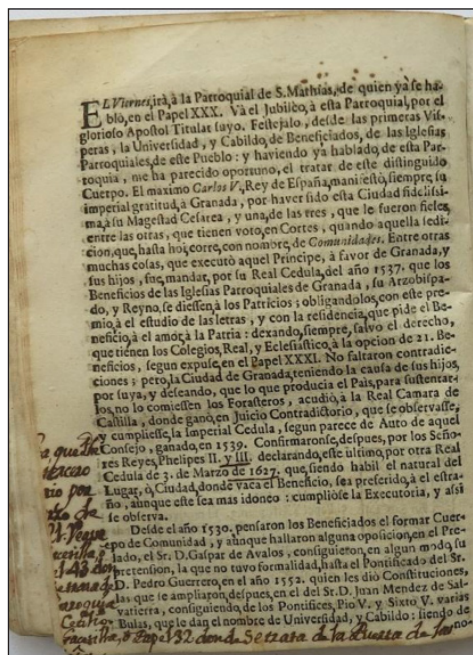 EL Viernes, irà, à la Parroquial de S. Mathias, de quien yà se ha-
blò, en el Papel XXX. Và el Jubileo, à esta Parroquial, por el
glorioso Apostol Titular suyo. Festejalo, desde las primeras Vis-
peras, la Universidad, y Cabildo, de Beneficiados, de las Iglesias
Parroquiales, de este Pueblo: y haviendo yà hablado, de esta Par-
roquia, me ha parecido oportuno, el tratar de este distinguido
Cuerpo. El maximo Carlos V. Rey de España, manifestò, siempre, su
imperial gratitud, à Granada, por haver sido esta Ciudad fidelissi-
ma, à su Magestad Cesarea, y una, de las tres, que le fueron fieles,
entre las otras, que tienen voto, en Cortes, quando aquella sedi-
cion, que, hasta hoi, corre, con nombre, de Comunidades. Entre otras
muchas cosas, que executò aquel Principe, à favor de Granada, y
sus hijos, fue, mandar, por su Real Cedula, del año 1537. que los
Beneficios de las Iglesias Parroquiales de Granada, su Arzobispa-
do, y Reyno, se diessen, à los Patricios; obligandolos, con este pre-
mio, à el estudio de las letras, y con la residencia, que pide el Be-
neficio, à el amor, à la Patria: dexando, siempre, salvo el derecho,
que tienen los Colegios, Real, y Eclesiastico, à la opcion de 21. Be-
neficios, segun expuse, en el Papel XXXI. No faltaron contradic-
ciones; pero, la Ciudad de Granada, teniendo la causa de sus hijos,
por suya, y deseando, que lo que producia el Pais, para sustentar-
los, no lo comiessen los Forasteros, acudiò, à la Real Camara de
Castilla, donde ganò, en Juicio Contradictorio, que se observasse,
y cumpliesse, la Imperial Cedula, segun parece de Auto de aquel
Consejo, ganado, en 1539. Confirmaronse, despues, por los Seño-
res Reyes, Phelipes II. y III. declarando, este ultimo, por otra Real
Cedula de 3. de Marzo de 1627. que, siendo habil el natural del
Lugar, ò, Ciudad, donde vaca el Beneficio, sea preferido, à el estra-
ño, aunque este sea mas idoneo: cumpliòse la Executoria, y assi
se observa.
Desde el año 1530. pensaron los Beneficiados el formar Cuer-
po de Comunidad, y aunque hallaron alguna oposicion, en el Pre-
lado, el Sr. D. Gaspar de Avalos, consiguieron, en algun modo, su
pretension, la que no tuvo formalidad, hasta el Pontificado del Sr.
D. Pedro Guerrero, en el año 1552. quien les diò Constituciones,
las que se ampliaron, despues, en el del Sr. D. Juan Mendez de Sal-
vatierra, consiguiendo, de los Pontifices, Pio V. y Sixto V. varias
Bulas, que le dan el nombre de Universidad, y Cabildo: siendo de
no-
papel 32 donde se trata de la